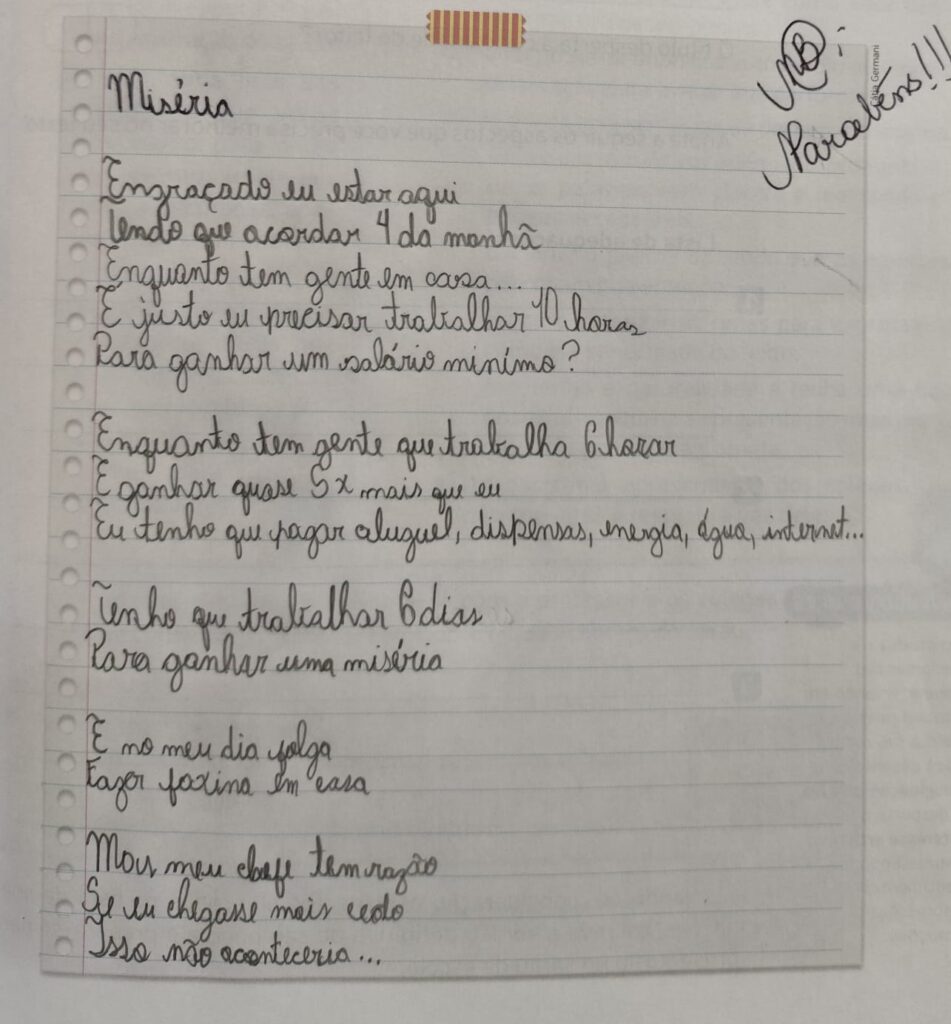 MB:
Parabéns!!!
Miséria
Engraçado eu estar aqui
Tendo que acordar 4 da manhã
Enquanto tem gente em casa...
É justo eu precisar trabalhar 10 horas
Para ganhar um salário minímo?
Enquanto tem gente que trabalha 6 horar
E ganhar quase 5x mais que eu
Eu tenho que pagar aluguel, dispensas, energia, água, internet...
Tenho que trabalhar 6 dias
Para ganhar uma miséria
E no meu dia folga
Fazer faxina em casa
Mou meu chefe tem razão
Se eu chegasse mais cedo
Isso não aconteceria...
Germani